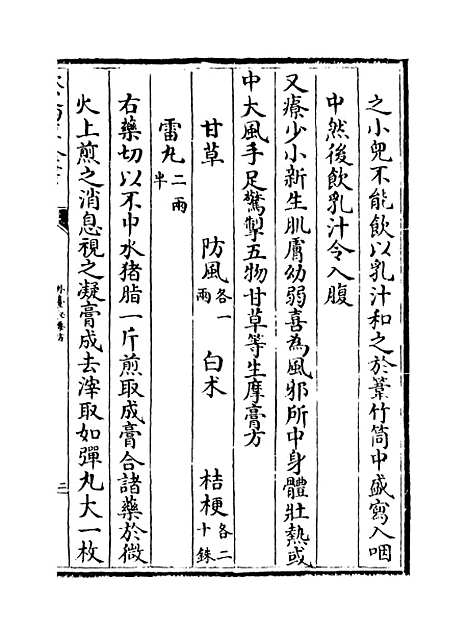 之小兒不能飲以乳汁和之於葦竹筒中盛寫入咽
中然後飲乳汁令入腹
又療少小新生肌膚幼弱喜為風邪所中身體壯熱或
中大風手足驚掣五物甘草等生摩膏方
甘草 防風各一兩 白术 桔梗各二十銖
雷丸二兩半
右藥切以不中水猪脂一斤煎取成膏合諸藥於微
火上煎之消息視之凝膏成去滓取如彈丸大一枚
二